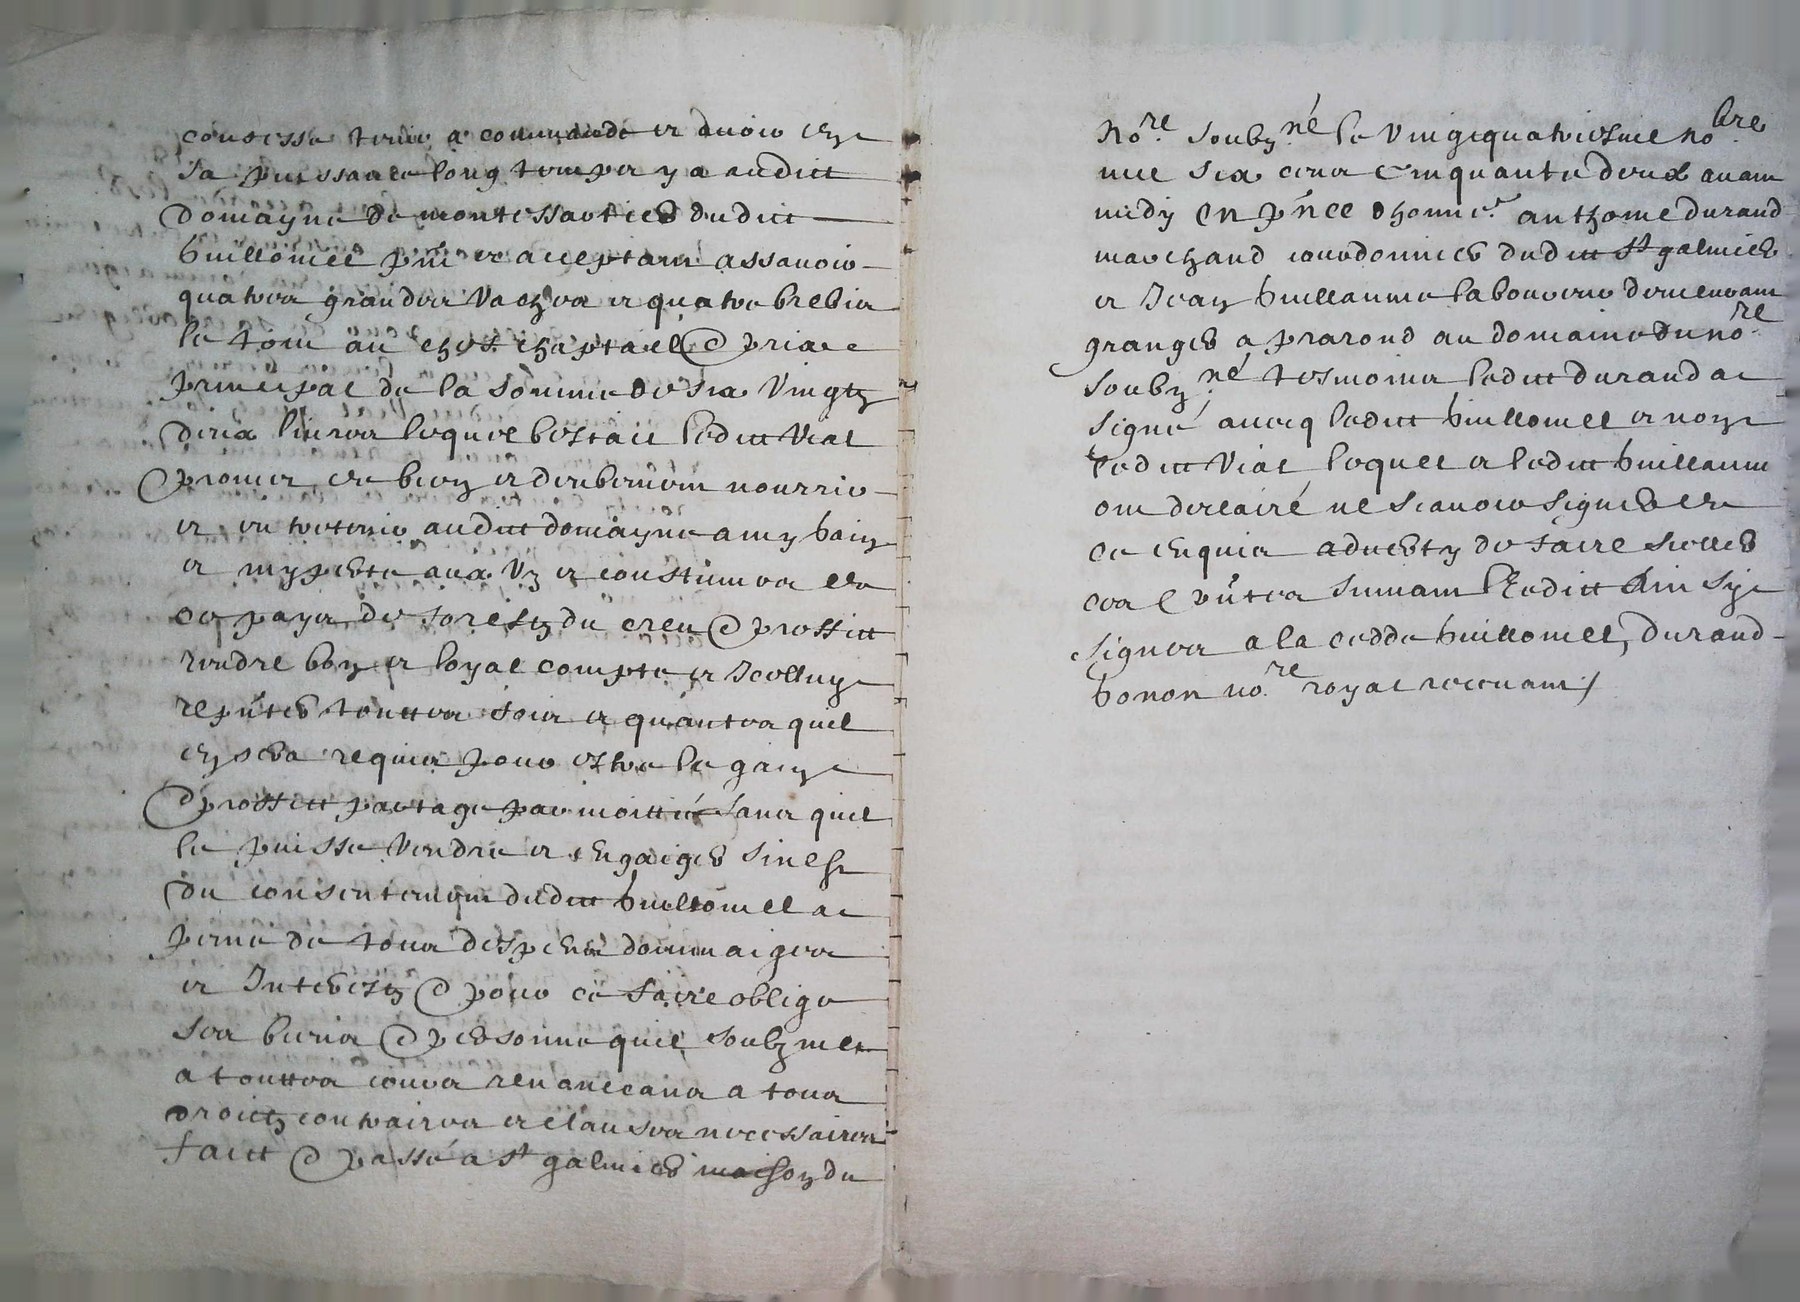 confesse tenir a commande et avoir en
sa puissance long temps y a audict
domayne de montessartier dudict
huillomel pnt et acceptant assavoir
quatre grandes vaches et quatre brebis
le tout au chest chaptael & priace
principal de la somme de six vingtz
deux livres lequel bestail ledict Vial
promet et bien et deubement nourrir
et entretenir audict domayne a my gain
et my perte aux Uz et coustumes de
ce pays de forestz du creu & proffict
rendre bon et loyal compte et Icelluy
repnter touttes fois et quantes quil
en sera requis pour estre le gain
& proffict partage par moittié sans quil
le puisse vendre et engaiger sinest
du consentement dudict huillomel a
peine de tous despens dommaiges
et Interestz & pour ce faire oblige
ses biens & personne quil soubzmet
a touttes cours renoncans a tous
droictz contraires et clauses necessaires
faict & passé a st galmier maison du
nore. soubz.né le vingtquatriesme nobre.
mil six cens cinquante deux avant
midy en pnce dhonne.r anthome durand
marchand courdonnier dudict st galmier
et Jean huillaume laboureur demeurant
granger a prarond au domaine du nore.
soubz.né tesmoins ledict durand a
signé avecq ledict huillomel et non
ledict Vial lequel et ledict huillaume
ont declairé ne scavoir signer de
ce enquis adverty de faire sceller
ces pntes suivant ledict ainsy
signes a la cedde huillomel, durand
bonon no.re royal recevant /